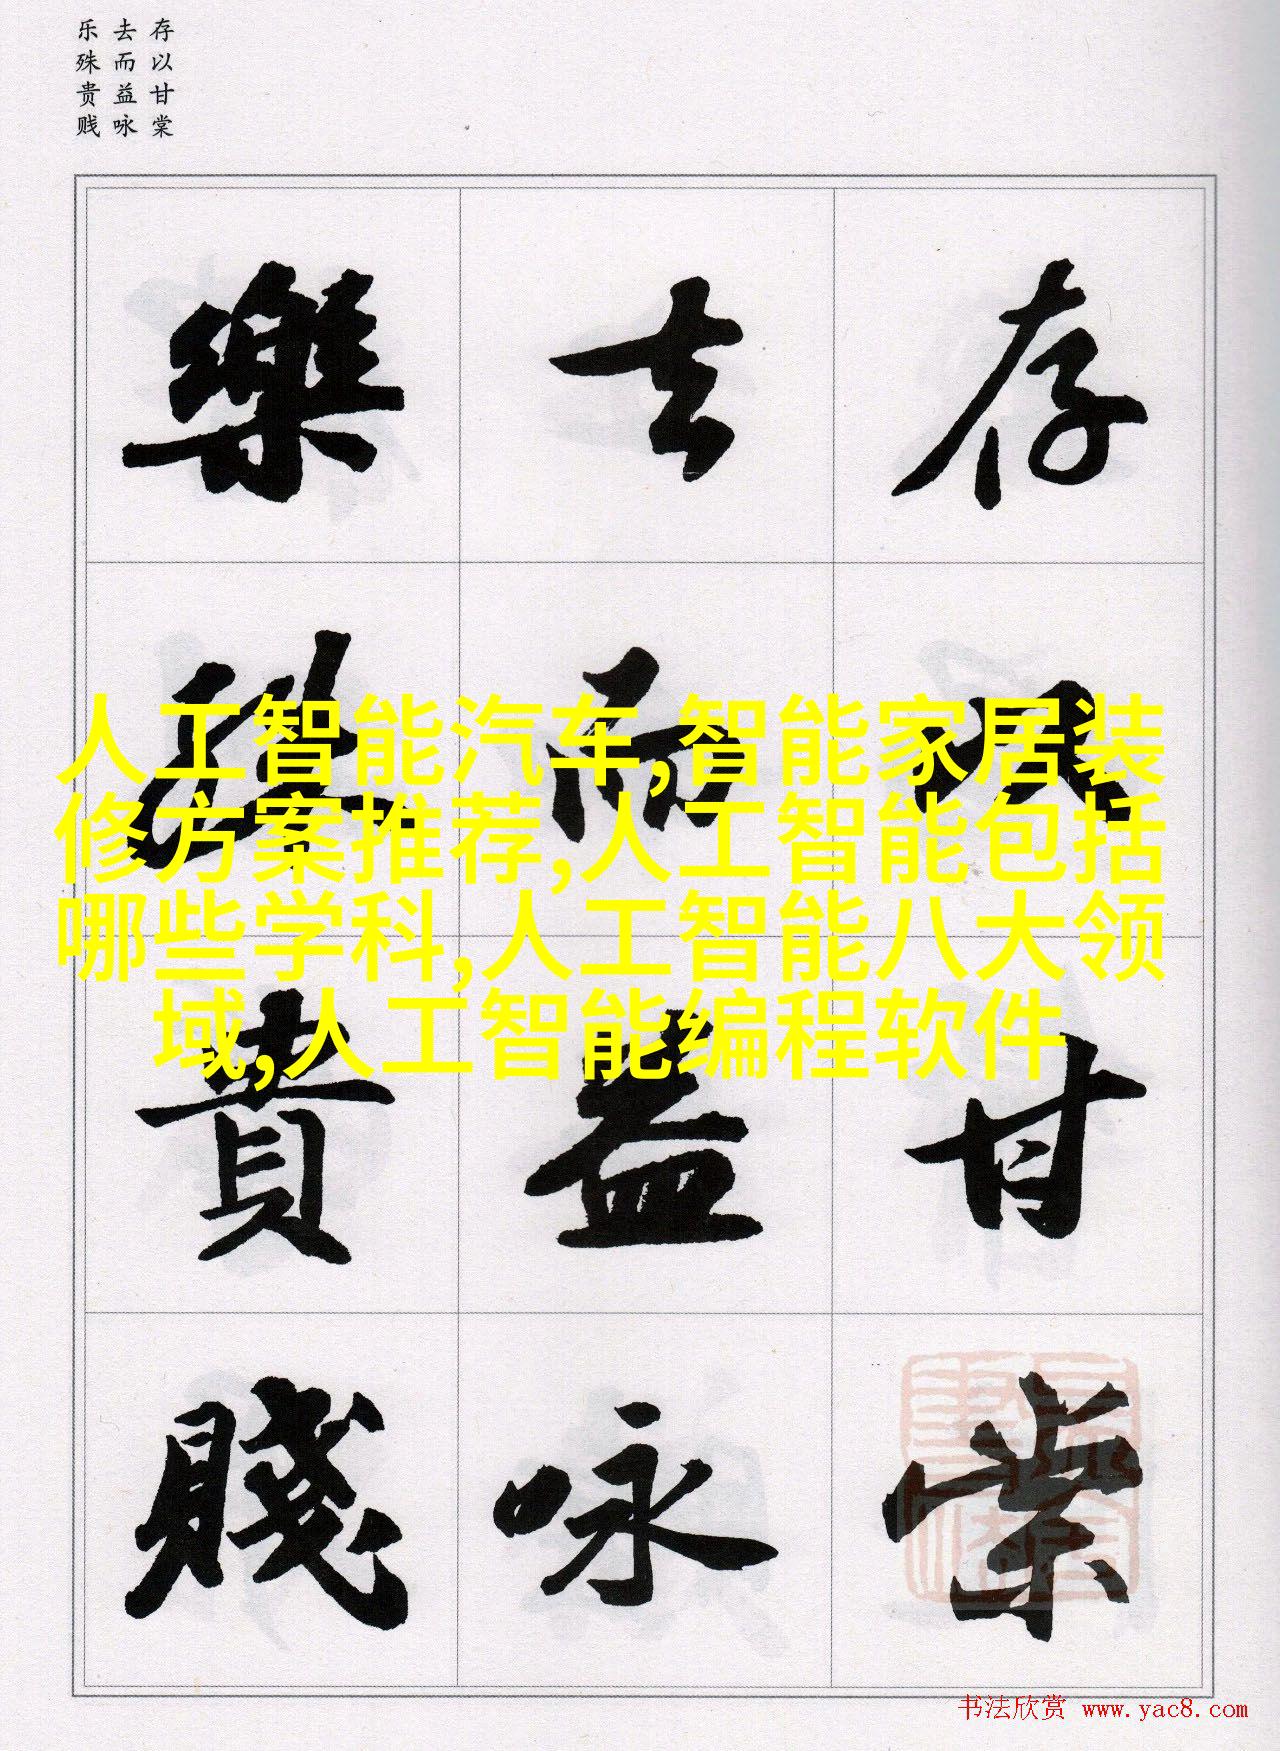 存以甘棠
去而益咏
乐殊贵贱
存以甘棠
去而益詠
樂殊貴賤
人工智能汽车,智能家居装
修方案推荐,人工智能包括
哪些学科,人工智能八大领
域,人工智能编程软件
书法欣赏 www.yac8.com